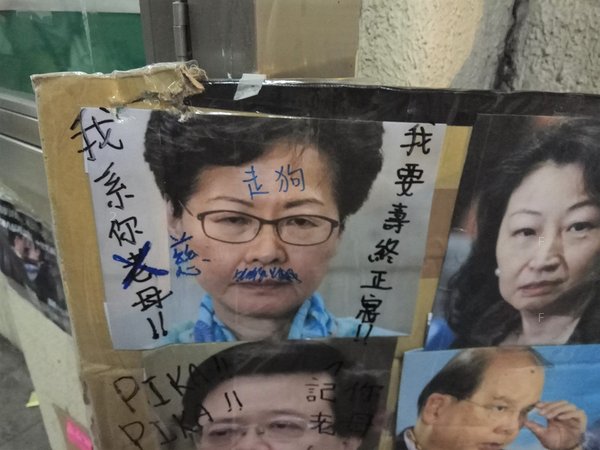 我系你慈母!!
走狗
我要壽終正寢!!
PIKA!!
PIKA!!
你母
記者
F
F